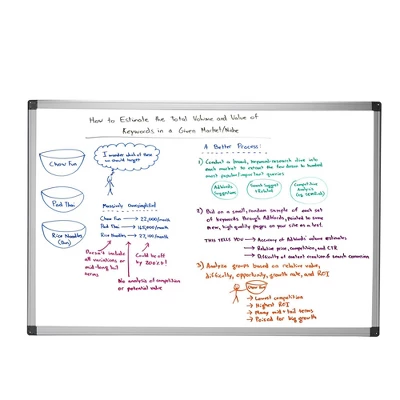 How to Estimate the Total Volume and Value of
Keywords in a Given Market/Niche
Chow Fun
Pad Thai
Rice Noodles
I wonder which of these
we should target?
Massively Oversimplified
Chow Fun → 22,000/month
Pad Thai → 165,000/month
Rice Noodles → 27,100/month
Doesn't include
all variations or
mid-long tail
terms
Could be off
by 200%!
No analysis of competition
or potential value
A Better Process:
1) Conduct a broad, keyword-research dive into
each market to extract the few dozen to hundred
most popular/important queries
AdWords
Suggestion
Search Suggest
+ Related
Competitive
Analysis
2) Bid on a small, random sample of each set
of keywords through AdWords, pointed to some
new, high quality pages on your site as a test.
THIS TELLS YOU → Accuracy of AdWords' volume estimates
→ Relative price, competition, and CTR
→ Difficulty of content creation & search conversion
3) Analyze groups based on relative value,
difficulty, opportunity, growth rate, and ROI
Chow Fun
→ Lowest competition
→ Highest ROI
→ Many mid + tail terms
→ Poised for big growth